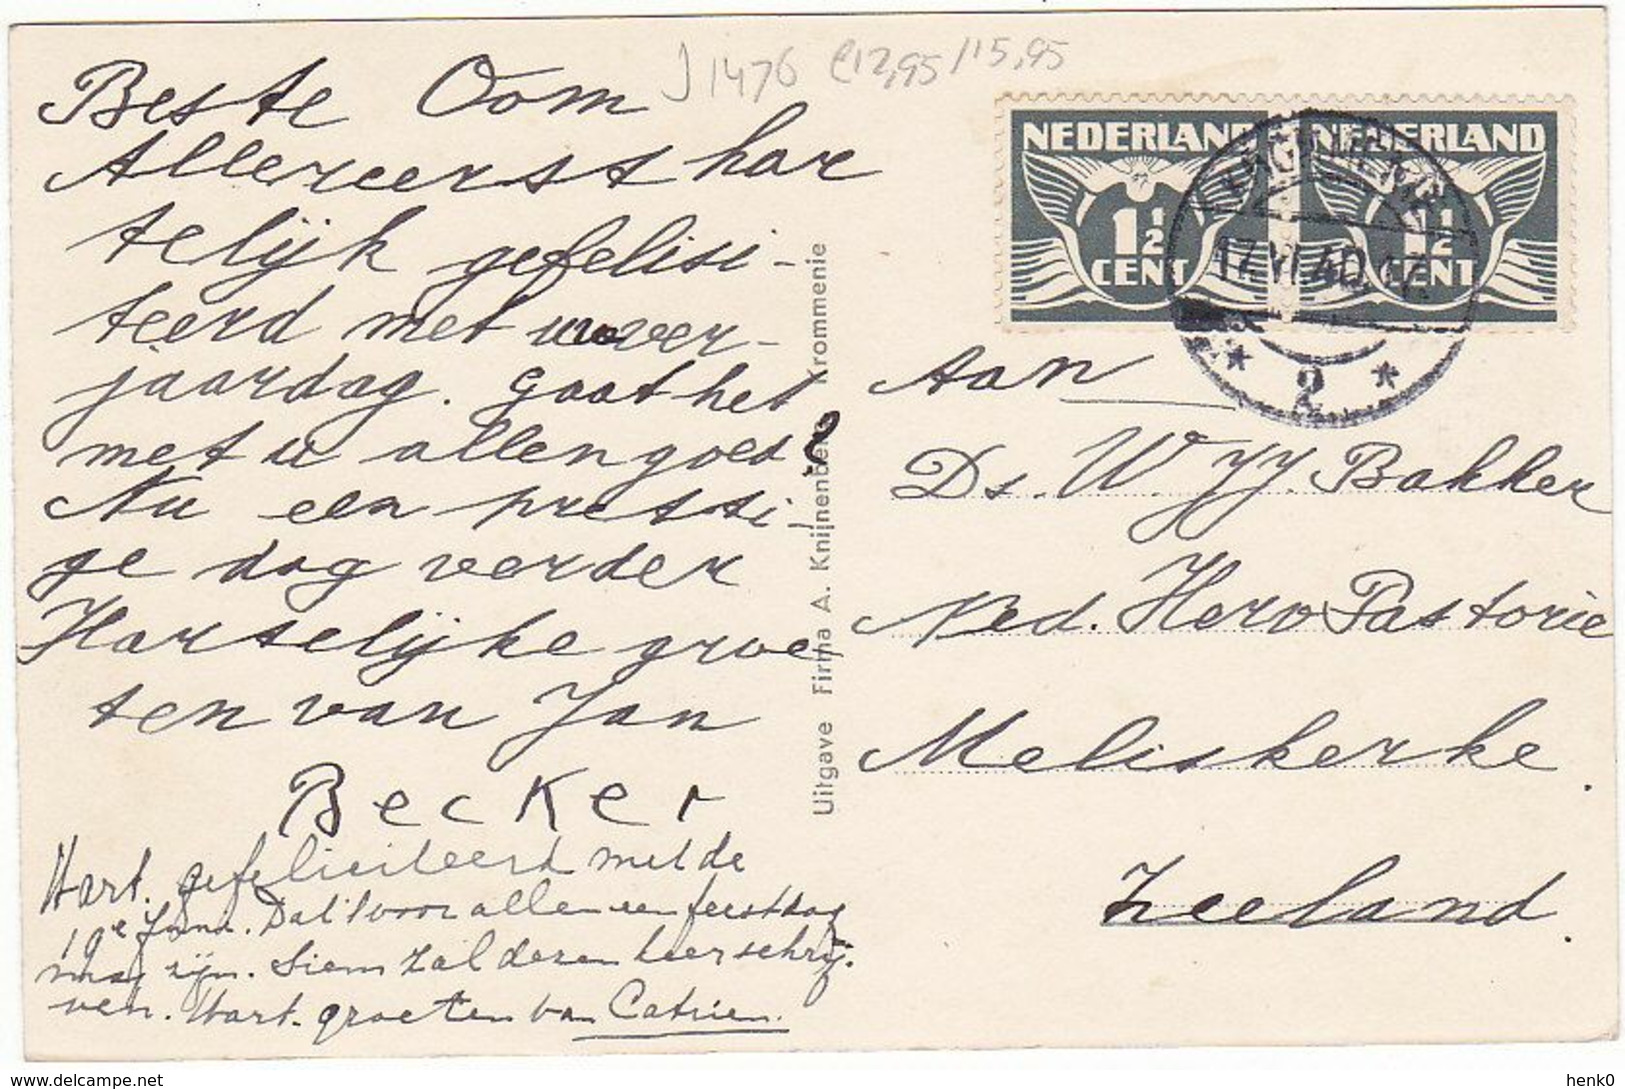 J 1476 €12,95/15,95
Beste Oom
Allereerst har
telijk gefelisi-
teerd met uw ver-
jaardag. Gaat het
met u allen goed?
Nu een pressi-
ge dag verder
Hartelijke groe
ten van Jan
Becker
Hart. gefeliciteerd met de
19e Juni. Dat 't voor allen een feestdag
mag zijn. Siem zal dezen keer schrij-
ven. Hart. groeten van Catrien.
Uitgave Firma A. Knijnenberg Krommenie
NEDERLAND NEDERLAND
1½ 1½
CENT CENT
17.VI.40.17
* 2 *
Aan
Ds. W. J.J. Bakker
Ned. Herv Pastorie
Meliskerke.
Zeeland.
https://www.delcampe.net
henk0